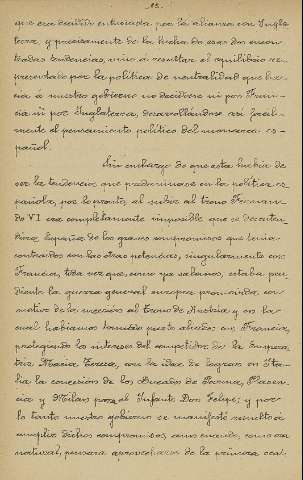 13.
que era decidido entusiasta por la alianza con Ingla-
terra, y precisamente de la lucha de esas dos encon-
tradas tendencias, vino á resultar el equilibrio re-
presentado por la política de neutralidad que ha-
cía á nuestro gobierno no decidirse ni por Fran-
cia ni por Inglaterra, desarrollándose así fácil-
mente el pensamiento político del monarca es-
pañol.
Sin embargo de que esta había de
ser la tendencia que predominase en la política es-
pañola, por lo pronto, al subir al trono Fernan-
do VI era completamente imposible que se desenten-
diera España de los graves compromisos que tenía
contraidos con las otras potencias, singularmente con
Francia, toda vez que, como ya sabemos, estaba pen-
diente la guerra general europea promovida, con
motivo de la sucesión al trono de Austria y en la
cual habíamos tomado puesto aliados con Francia,
protegiendo los intereses del competidor de la Empera-
triz María Teresa, con la idea de lograr en Ita-
lia la concesión de los Ducados de Parma, Plasen-
cia y Milán para el Infante Don Felipe; y por
lo tanto nuestro gobierno se manifestó resuelto á
cumplir dichos compromisos, aun cuando, como era
natural, pensara aprovecharse de la primera oca-